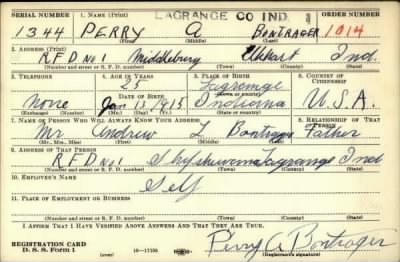 SERIAL NUMBER 1. NAME (Print) LAGRANGE CO IND. 1 ORDER NUMBER
1344 PERRY A BONTRAGER 1014
(First) (Middle) (Last)
2. ADDRESS (Print)
R.F.D No. 1 Middlebury Elkhart Ind.
(Number and street or R. F. D. number) (Town) (County) (State)
3. TELEPHONE 4. AGE IN YEARS 5. PLACE OF BIRTH 6. COUNTRY OF CITIZENSHIP
25 Lagrange
(Town or county)
None Jan 13 1915 Indiana U.S.A.
(Exchange) (Number) (Mo.) (Day) (Yr.) (State or country)
7. NAME OF PERSON WHO WILL ALWAYS KNOW YOUR ADDRESS 8. RELATIONSHIP OF THAT PERSON
Mr Andrew L Bontrager Father
(Mr., Mrs., Miss) (First) (Middle) (Last)
9. ADDRESS OF THAT PERSON
R.F.D No. 1 Shipshewana Lagrange Ind
(Number and street or R. F. D. number) (Town) (County) (State)
10. EMPLOYER'S NAME
Self
11. PLACE OF EMPLOYMENT OR BUSINESS
(Number and street or R. F. D. number) (Town) (County) (State)
I AFFIRM THAT I HAVE VERIFIED ABOVE ANSWERS AND THAT THEY ARE TRUE.
REGISTRATION CARD
D. S. S. Form 1 16—17105 Perry A Bontrager
(Registrant's signature)